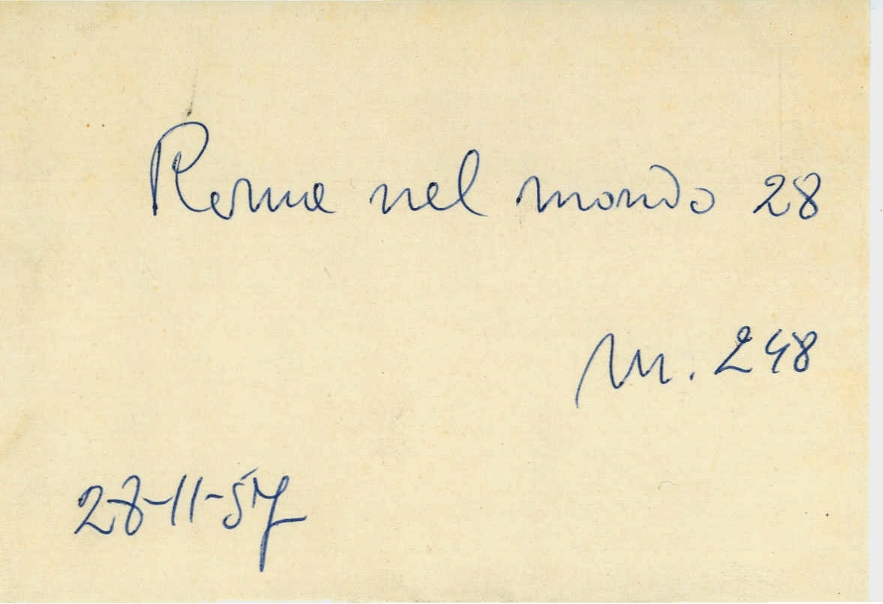 Roma nel mondo 28
M. 248
28-11-57